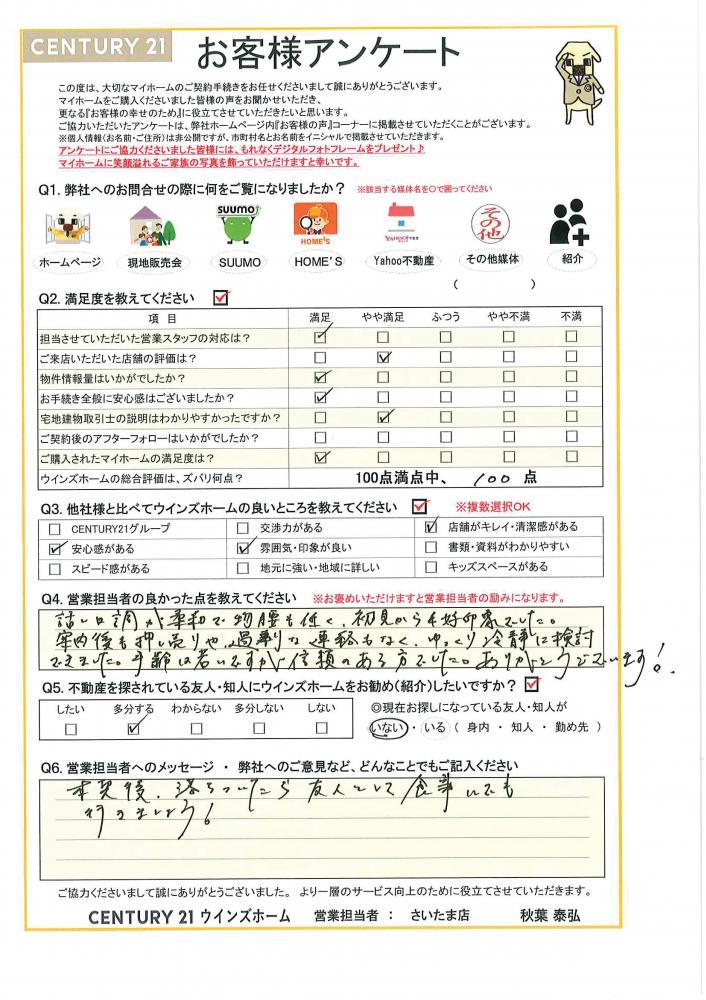 CENTURY 21 お客様アンケート
この度は、大切なマイホームのご契約手続きをお任せくださいまして誠にありがとうございます。
マイホームをご購入くださいました皆様の声をお聞かせいただき、
更なる『お客様の幸せのため』に役立てさせていただきたいと思います。
ご協力いただいたアンケートは、弊社ホームページ内『お客様の声』コーナーに掲載させていただくことがございます。
※個人情報(お名前・ご住所)は非公開ですが、市町村名とお名前をイニシャルで掲載させていただきます。
アンケートにご協力くださいました皆様には、もれなくデジタルフォトフレームをプレゼント♪
マイホームに笑顔溢れるご家族の写真を飾っていただけますと幸いです。
Q1. 弊社へのお問合せの際に何をご覧になりましたか? ※該当する媒体名を○で囲ってください
SUUMO HOME'S YAHOO!不動産 その他
ホームページ 現地販売会 SUUMO HOME'S Yahoo不動産 その他媒体 紹介
( )
Q2. 満足度を教えてください
項目 満足 やや満足 ふつう やや不満 不満
担当させていただいた営業スタッフの対応は?
ご来店いただいた店舗の評価は?
物件情報量はいかがでしたか?
お手続き全般に安心感はございましたか?
宅地建物取引士の説明はわかりやすかったですか?
ご契約後のアフターフォローはいかがでしたか?
ご購入されたマイホームの満足度は?
ウインズホームの総合評価は、ズバリ何点? 100点満点中、 100 点
Q3. 他社様と比べてウインズホームの良いところを教えてください ※複数選択OK
CENTURY21グループ 交渉力がある 店舗がキレイ・清潔感がある
安心感がある 雰囲気・印象が良い 書類・資料がわかりやすい
スピード感がある 地元に強い・地域に詳しい キッズスペースがある
Q4. 営業担当者の良かった点を教えてください ※お褒めいただけますと営業担当者の励みになります。
話し口調が柔和で物腰も低く、初見から好印象でした。
案内後も押し売りや、過剰な連絡もなく、ゆっくり冷静に検討
できました。年齢は若いですが信頼のある方でした。ありがとうございます!
Q5. 不動産を探されている友人・知人にウインズホームをお勧め(紹介)したいですか?
したい 多分する わからない 多分しない しない ◎現在お探しになっている友人・知人が
いない ・ いる ( 身内 ・ 知人 ・ 勤め先 )
Q6. 営業担当者へのメッセージ ・ 弊社へのご意見など、どんなことでもご記入ください
本契後、落ちついたら友人として食事にでも
行きましょう!
ご協力くださいまして誠にありがとうございました。 より一層のサービス向上のために役立てさせていただきます。
CENTURY 21 ウインズホーム 営業担当者 : さいたま店 秋葉 泰弘